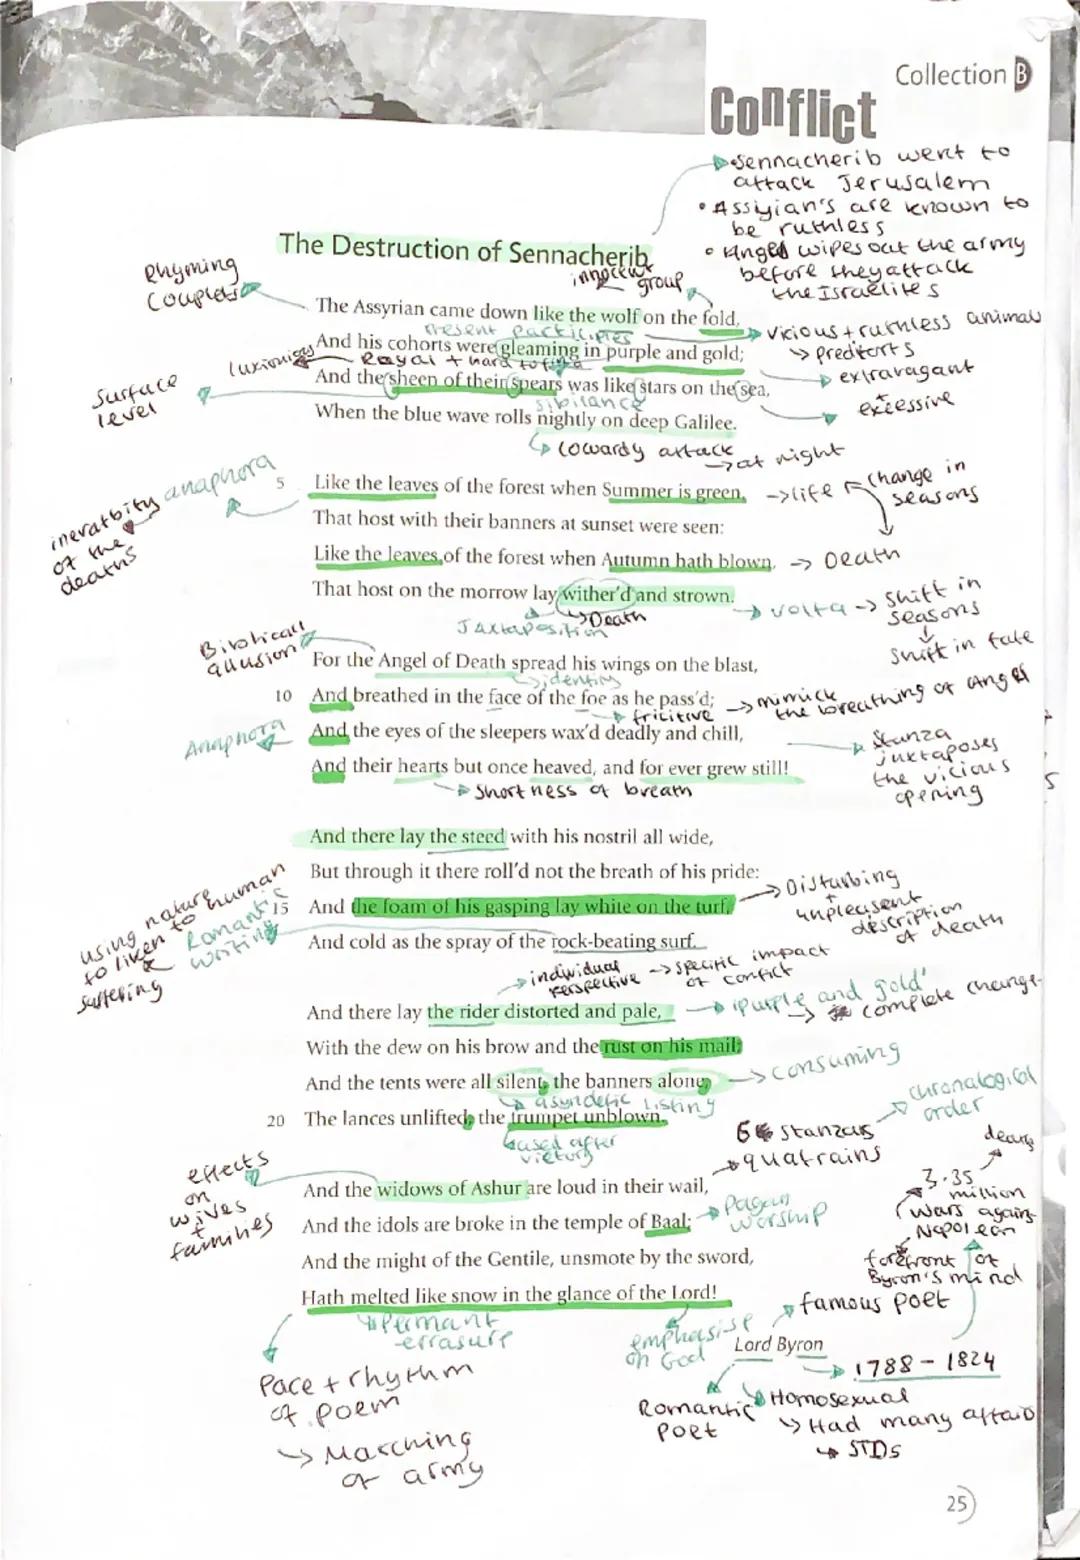 Collection B
Conflict
Sennacherib went to
attack Jerusalem
• Assyian's are known to
be ruthless
• Angel wipes out the army
before they attack
the Israelites
The Destruction of Sennacherib
innocent
group
Rhyming
Couplets
The Assyrian came down like the wolf on the fold,
present participles
Vicious + ruthless animals
→ preditors
And his cohorts were gleaming in purple and gold;
Royal + hard to find
extravagant
+
excessive
Surface
level
And the sheen of their spears was like stars on the sea,
sibilance
When the blue wave rolls nightly on deep Galilee.
cowardy attack
→ at night
anaphora
inevatbity
of the
deaths
5 Like the leaves of the forest when Summer is green,
→ life
change in
seasons
That host with their banners at sunset were seen:
Like the leaves of the forest when Autumn hath blown,
→ Death
That host on the morrow lay wither'd and strown.
→ Death
Juxtaposition
volta → shift in
seasons
↓
shift in fate
Biblical
allusion
For the Angel of Death spread his wings on the blast,
identity
10 And breathed in the face of the foe as he pass'd;
fricitive
→ mimick
the breathing of Angel
Anaphora
And the eyes of the sleepers wax'd deadly and chill,
stanza
juxtaposes
the vicious
opening
And their hearts but once heaved, and for ever grew still!
shortness of breath
And there lay the steed with his nostril all wide,
But through it there roll'd not the breath of his pride:
using nature
to liken to human
suffering
Romantic
writing
15 And the foam of his gasping lay white on the turf,
→ Disturbing
+
unpleasent
description
of death
And cold as the spray of the rock-beating surf.
individual
perspective
→ specific impact
of conflict
And there lay the rider distorted and pale,
'purple and gold'
→ complete change
With the dew on his brow and the rust on his mail:
And the tents were all silent, the banners alone,
→ consuming
asyndetic listing
20 The lances unlifted, the trumpet unblown.
used after
victory
6 stanzas
quatrains
chronological
order
effects
on
wives
+
families
And the widows of Ashur are loud in their wail,
And the idols are broke in the temple of Baal;
Pagan
worship
And the might of the Gentile, unsmote by the sword,
Hath melted like snow in the glance of the Lord!
permant
errasure
emphasise
on God
Pace + rhythm
of poem
→ Marching
of army
3.35
million
wars agains
Napolean
forefront of
Byron's mind
famous poet
Lord Byron
1788 – 1824
Romantic
poet
Homosexual
→ Had many affairs
→ STDs
25